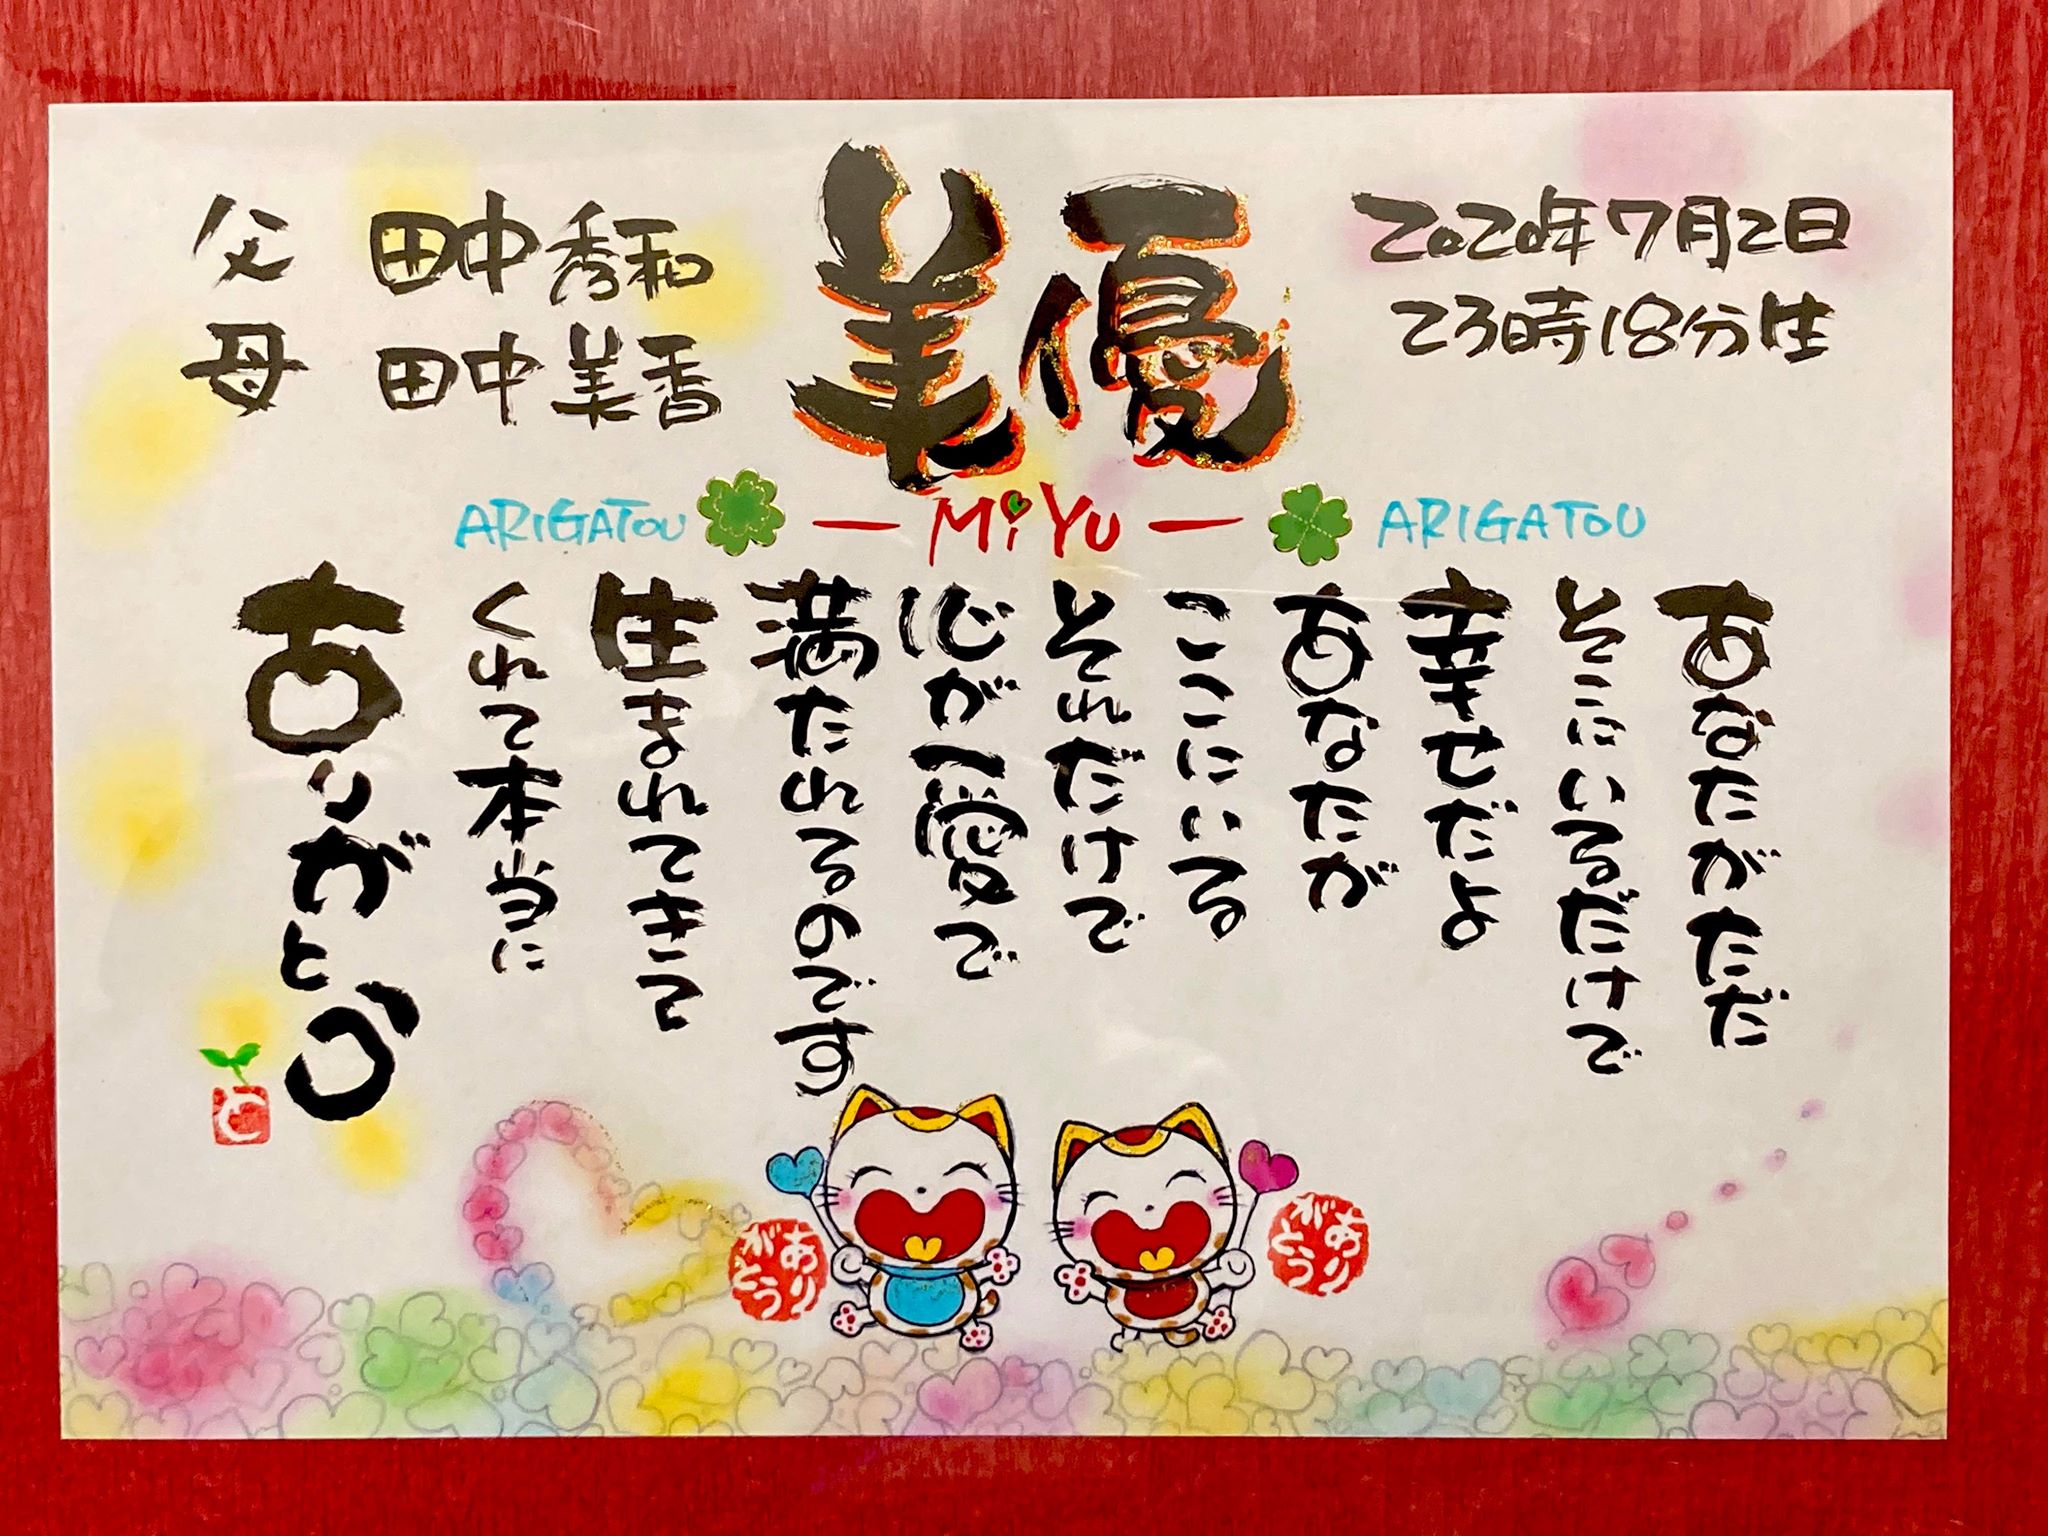 父 田中秀和
母 田中美香
美優
2020年7月2日
23時18分生
ARIGATOU
— MiYU —
ARIGATOU
あなたがただ
そこにいるだけで
幸せだよ
あなたが
ここにいる
それだけで
心が愛で
満たれるのです
生まれてきて
くれて本当に
ありがとう
と
ありがとう
ありがとう